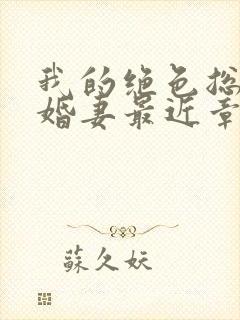 我的绝色总
婚妻最近章
蘇久妖